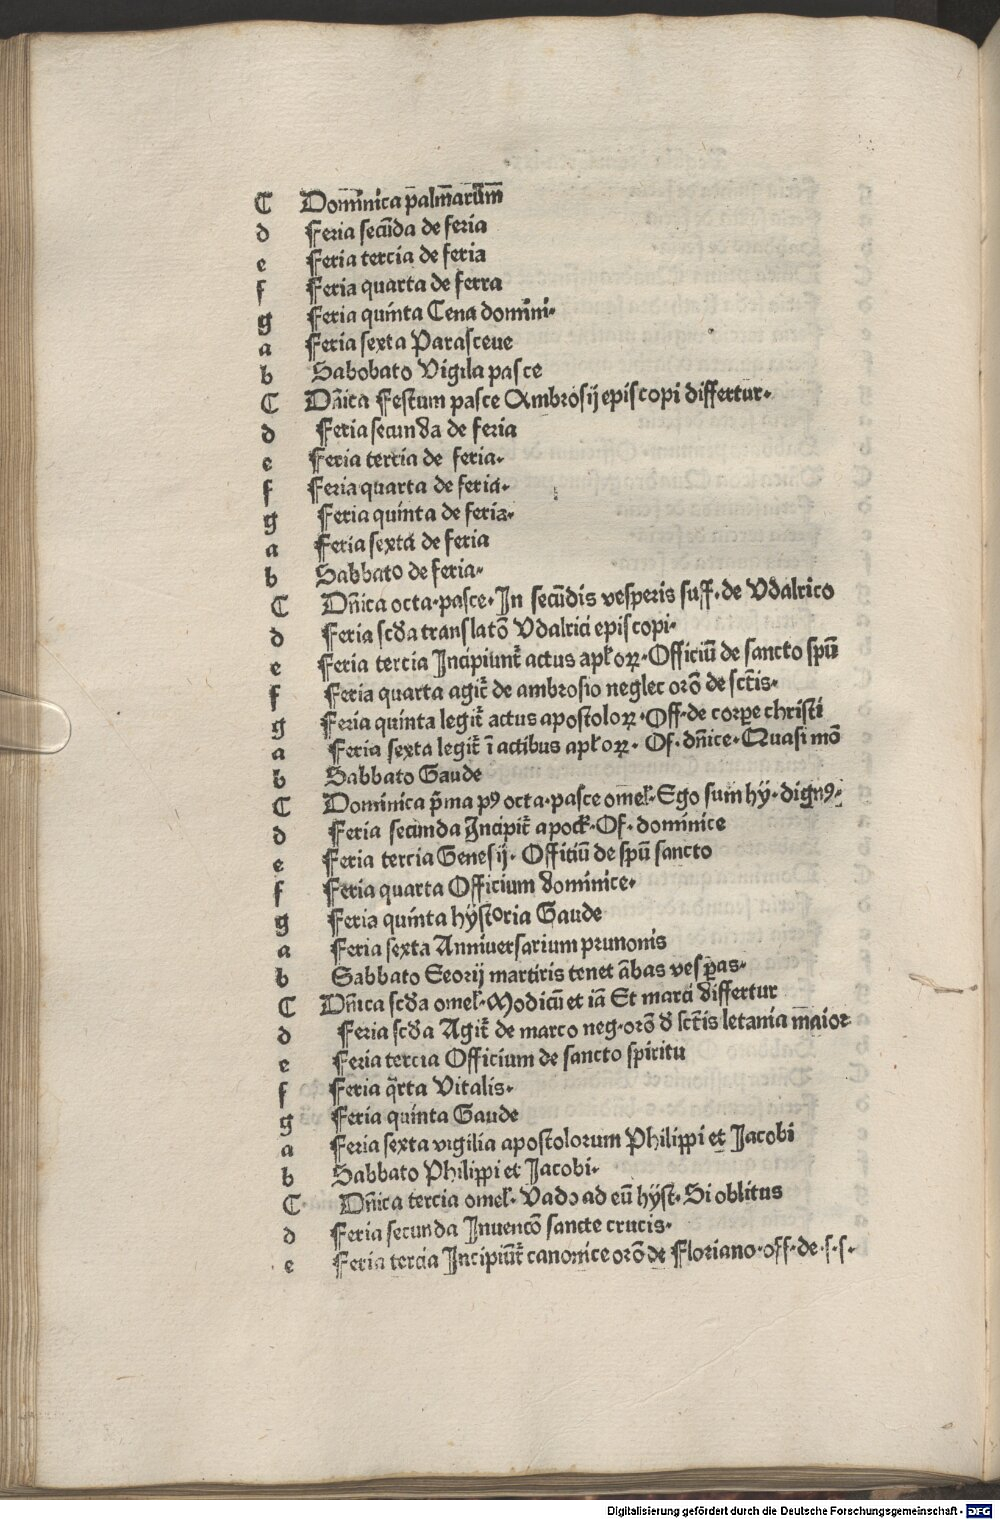 C Dom̄inica p̄alm̄arūm̄
d Feria secūda de feria
e Feria tercia de feria
f Feria quarta de ferra
g Feria quinta Cena domini·
a Feria sexta Parasceue
b Sabobato Vigila pasce
C Dn̄ica Festum pasce Ambrosij episcopi differtur·
d Feria secunda de feria
e Feria tertia de feria·
f Feria quarta de feria·
g Feria quinta de feria·
a Feria sexta de feria
b Sabbato de feria·
C Dn̄ica octa·pasce·In secūdis vesperis suff·de Vdalrico
d Feria scd̄a translatō Vdalrici episcopi·
e Feria tercia Incipiunt᷑ actus apl̄oꝝ·Officiū de sancto spū
f Feria quarta agit᷑ de ambrosio neglec orō de sct̄is·
g Feria quinta legit᷑ actus apostoloꝝ·Off·de corꝑe christi
a Feria sexta legit᷑ ī actibus apl̄oꝝ·Of·dn̄ice·Quasi mō
b Sabbato Gaude
C Dominica p̄ma pꝰ octa·pasce omel̄·Ego sum hy·dignꝰ·
d Feria secunda Incipit᷑ apock̄·Of·dominice
e Feria tercia Genesij·Offitiū de spū sancto
f Feria quarta Officium dominice·
g Feria quinta hÿstoria Gaude
a Feria sexta Anniuersarium prunonis
b Sabbato Seorij martiris tenet ābas vesꝑas·
C Dn̄ica scd̄a omel̄·Modicū et iā Et marci differtur
d Feria scd̄a Agit᷑ de marco neg·orō d̄ sct̄is letania m̄aior
e Feria tercia Officium de sancto spiritu
f Feria q̄rta Vitalis·
g Feria quinta Gaude
a Feria sexta vigilia apostolorum Philippi et Jacobi
b Sabbato Philippi et Jacobi·
C Dn̄ica tercia omel̄·Vado ad eū hÿst·Si oblitus
d Feria secunda Inuencō sancte crucis·
e Feria tercia Incipiūt᷑ canonice orō de Floriano·off·de·s·s·
Digitalisierung gefördert durch die Deutsche Forschungsgemeinschaft - DFG